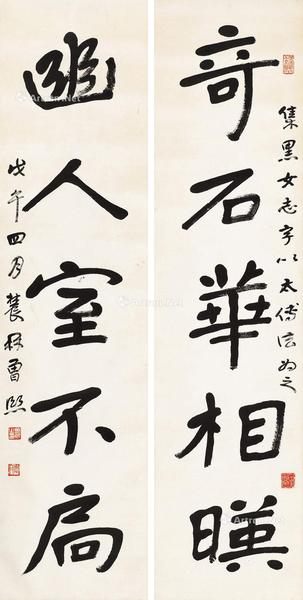 集黑女志字以太傅法为之
奇石華相暎
幽人室不扃
戊午四月農髯曾熙